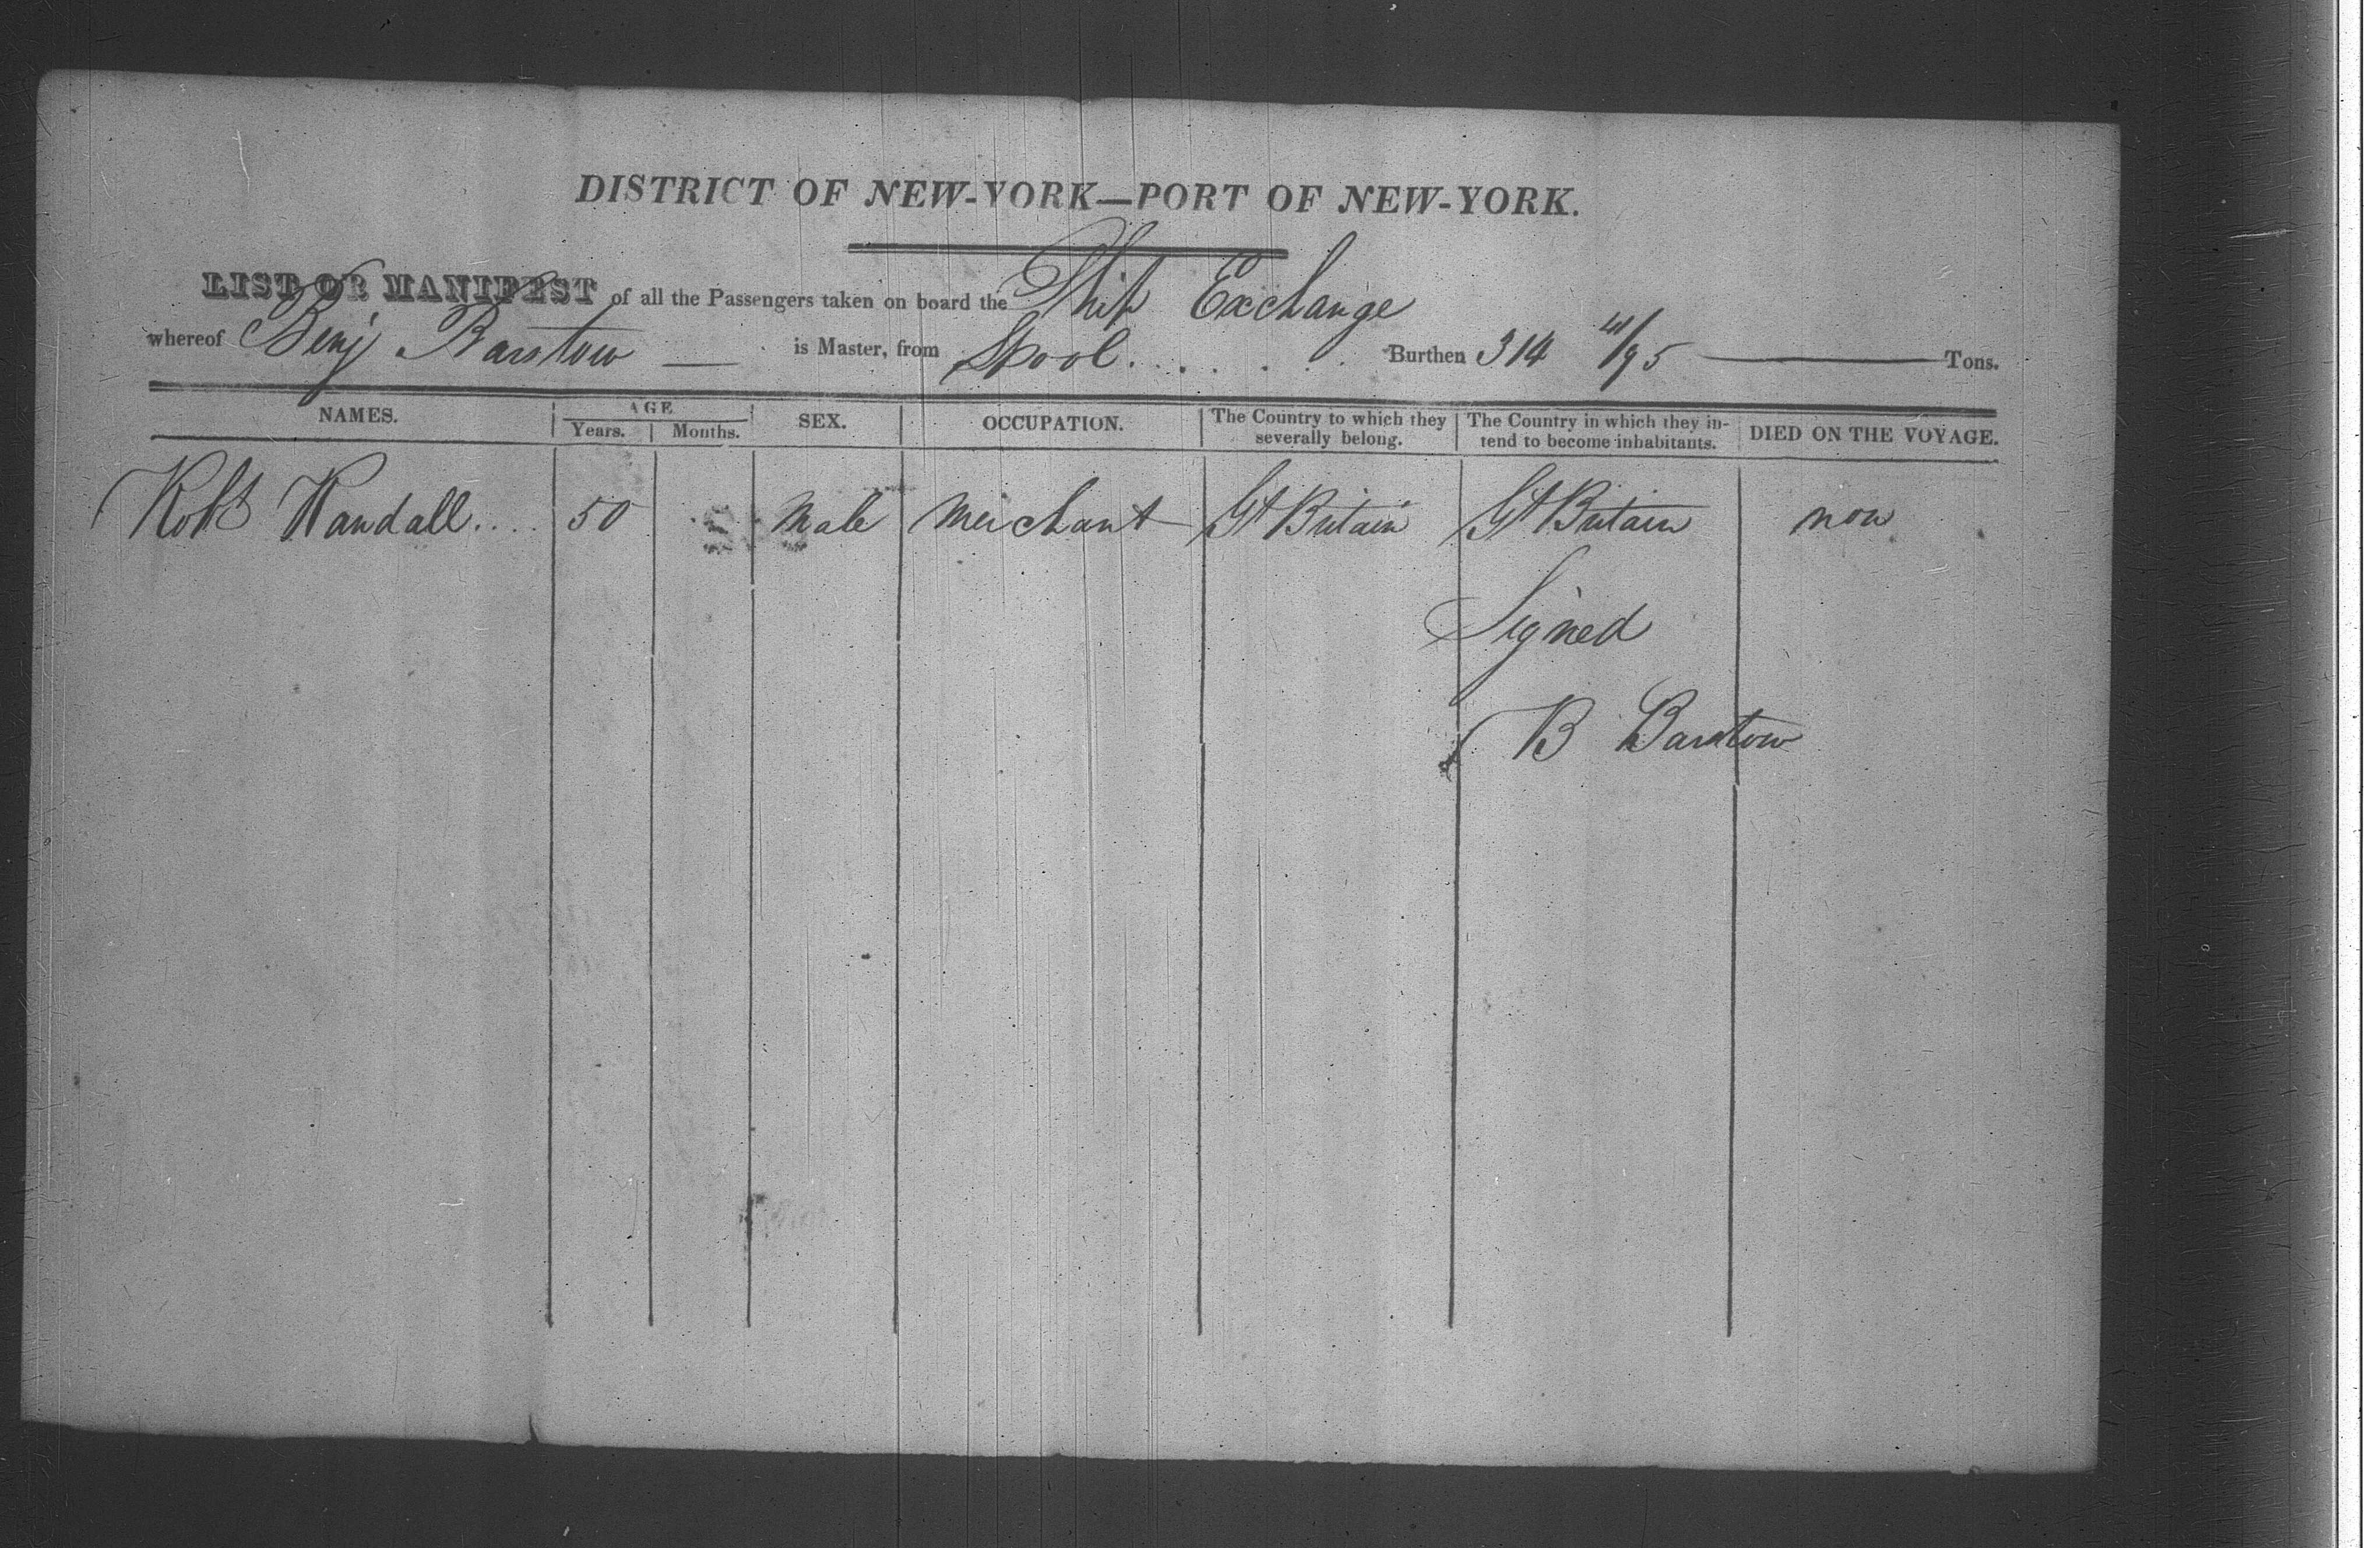 DISTRICT OF NEW-YORK—PORT OF NEW-YORK.
LIST OR MANIFEST of all the Passengers taken on board the Ship Exchange
whereof Benj Barstow — is Master, from Lpool. . . . . . Burthen 314 /95 — Tons.
NAMES. AGE SEX. OCCUPATION. The Country to which they severally belong. The Country in which they in-tend to become inhabitants. DIED ON THE VOYAGE.
Years. Months.
Robt Randall.... 50 Male Merchant Gt Britain Gt Britain non
Signed
B Barstow